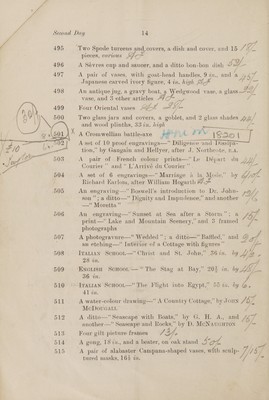 Second Day 14
495 Two Spode tureens and covers, a dish and cover, and 15
pieces, various
496 A Sèvres cup and saucer, and a ditto bon-bon dish
497 A pair of vases, with goat-head handles, 9 in., and a
Japanese carved ivory figure, 4 in. high
498 An antique jug, a gravy boat, a Wedgwood vase, a glass
vase, and 3 other articles
499 Four Oriental vases
500 Two glass jars and covers, a goblet, and 2 glass shades
and wood plinths, 33 in. high
501 A Cromwellian battle-axe
18201
502 A set of 10 proof engravings—"Diligence and Dissipa-
tion," by Gaugain and Hellyer, after J. Northcote, R.A.
503 A pair of French colour prints—"Le Départ du
Courier" and "L'Arrivé du Courier"
504 A set of 6 engravings—"Marriage à la Mode," by
Richard Earlom, after William Hogarth
505 An engraving—"Boswell's introduction to Dr. John-
son"; a ditto—"Dignity and Impudence," and another
—"Moments"
506 An engraving—"Sunset at Sea after a Storm"; a
print—"Lake and Mountain Scenery," and 3 framed
photographs
507 A photogravure—"Wedded"; a ditto—"Baffled," and
an etching—"Interior of a Cottage with figures"
508 ITALIAN SCHOOL—"Christ and St. John," 36 in. by
28 in.
509 ENGLISH SCHOOL—"The Stag at Bay," 29½ in. by
36 in.
510 ITALIAN SCHOOL—"The Flight into Egypt," 55 in. by
41 in.
511 A water-colour drawing—"A Country Cottage," by JOHN
MCDOUGALL
512 A ditto—"Seascape with Boats," by G. H. A., and
another—"Seascape and Rocks," by D. MCNAUGHTON
513 Four gilt picture frames
514 A gong, 18 in., and a beater, on oak stand
515 A pair of alabaster Campana-shaped vases, with sculp-
tured masks, 16½ in.